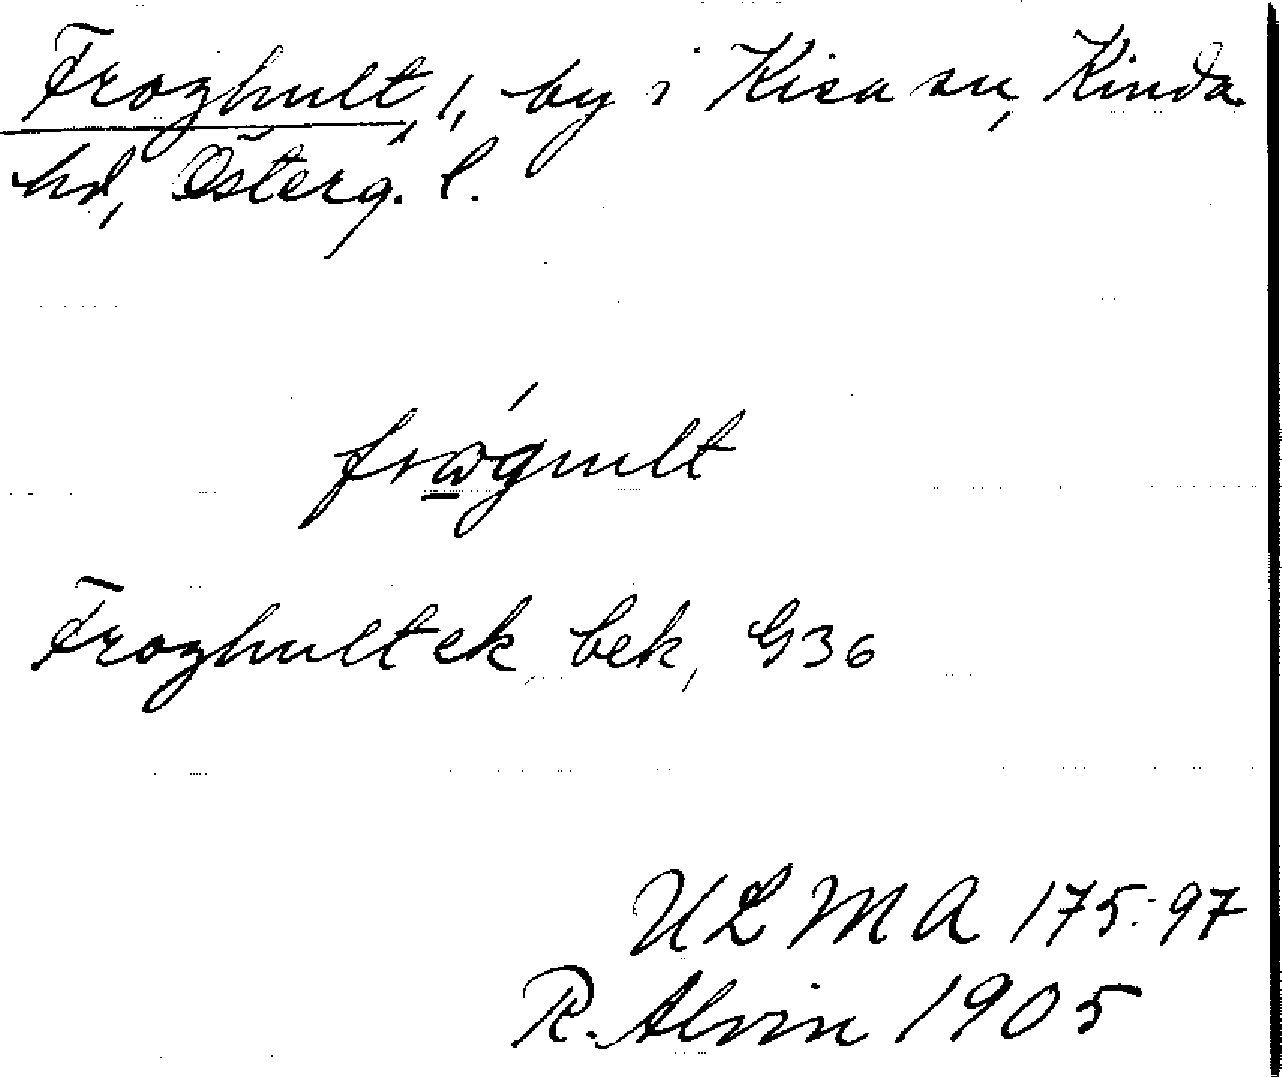 Froghult, 1, by i Kisa sn, Kinda
hd, Österg. l.
frώ̲gult
Froghultek bek, G36
ULMA 175:97
R. Alvin 1905